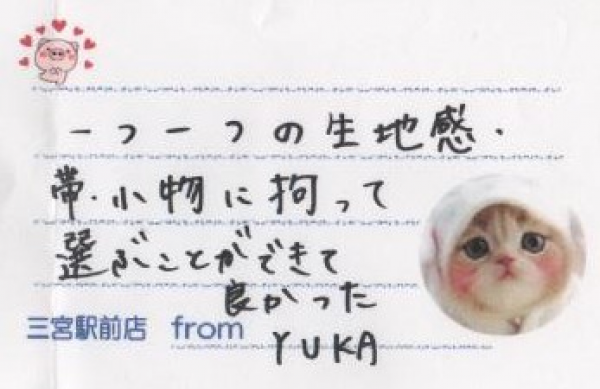 一つ一つの生地感・
帯・小物に拘って
選ぶことができて
良かった
三宮駅前店 from
YUKA